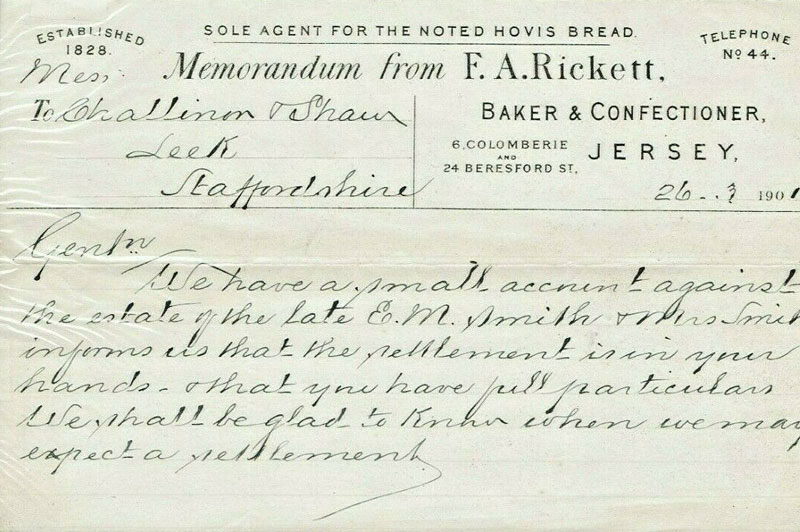 ESTABLISHED
1828.
SOLE AGENT FOR THE NOTED HOVIS BREAD.
TELEPHONE
No 44.
Memorandum from F. A. Rickett,
Mess
To Challinor & Shaw
Leek
Staffordshire
BAKER & CONFECTIONER,
6, COLOMBERIE
AND
24 BERESFORD ST,
JERSEY,
26 1901
Gentn
We have a small account against
the estate of the late E. M. Smith & Mrs Smith
informs us that the settlement is in your
hands - & that you have full particulars
We shall be glad to know when we may
expect a settlement